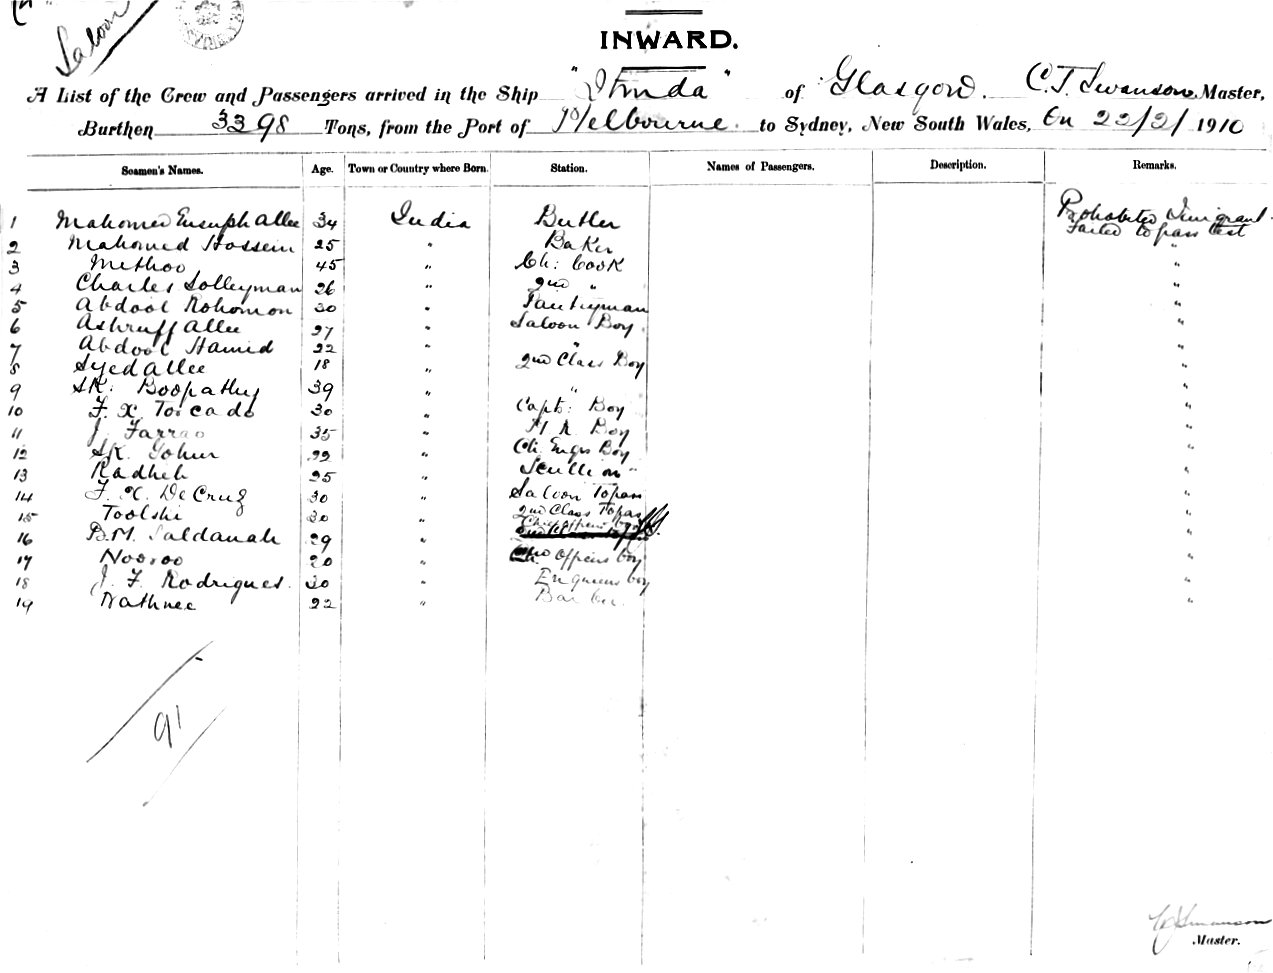 Saloon
INWARD.
A List of the Crew and Passengers arrived in the Ship "Itinda" of Glasgow. C.T. Swanson Master,
Burthen 3398 Tons, from the Port of Melbourne. to Sydney, New South Wales, On 22/2/1910
Seamen's Names. Age. Town or Country where Born. Station. Names of Passengers. Description. Remarks.
1 Mahomed Eusuph Allee 34 India Butler Prohibited Imigrant.
Failed to pass test
2 Mahomed Hossein 25 " Baker "
3 Methoo 45 " Ch: Cook "
4 Charles Solleyman 26 " 2nd " "
5 Abdool Rohomon 30 " Pantryman "
6 Ashruff Allee 27 " Saloon Boy "
7 Abdool Hamid 22 " " "
8 Syed Allee 18 " 2nd Class Boy "
9 SK: Boopathy 39 " " "
10 F. X. Torcado 30 " Capts: Boy "
11 J. Farrao 35 " M R Boy "
12 SK. Gohur 22 " Ch: Engrs Boy "
13 Radheh 25 " Scullion "
14 F. X. De Cruz 30 " Saloon Topas "
15 Toolshi 30 " 2nd Class Topas "
16 B.M. Saldanah 29 " Chief officers boy "
17 Nooroo 20 " officers boy "
18 J. F. Rodrigues. 30 " Engineers boy "
19 Nathnee 22 " Barber. "
91
C T Swanson
Master.